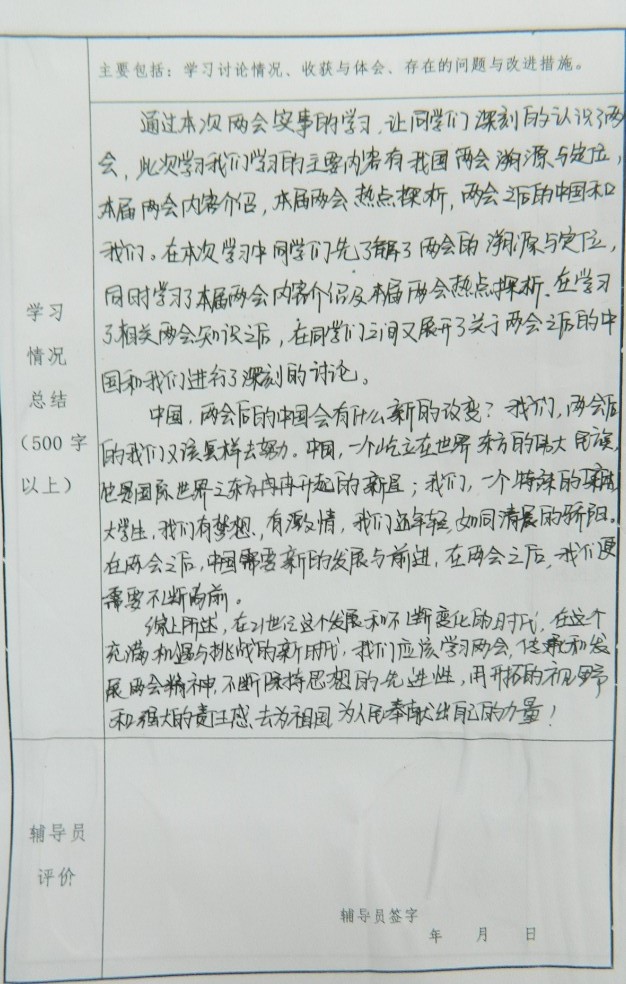 主要包括：学习讨论情况、收获与体会、存在的问题与改进措施。
通过本次两会实事的学习，让同学们深刻的认识了两
会，此次学习我们学习的主要内容有我国两会溯源与定位，
本届两会内容介绍，本届两会热点探析，两会之后的中国和
我们。在本次学习中同学们先了解了两会的溯源与定位，
同时学习了本届两会内容介绍及本届两会热点探析。在学习
了相关两会知识之后，在同学们之间又展开了关于两会之后的中
国和我们进行了深刻的讨论。
中国，两会后的中国会有什么新的改变？我们，两会后
的我们又该怎样去努力。中国，一个屹立在世界东方的伟大民族，
也是国际世界之东方冉冉升起的新星；我们，一个特殊的
大学生，我们有梦想，有激情，我们还年轻，如同清晨的骄阳。
在两会之后，中国需要新的发展与前进，在两会之后，我们更
需要不断向前。
综上所述，在21世纪这个发展和不断变化的时代，在这个
充满机遇与挑战的新时代，我们应该学习两会，传承和发
展两会精神，不断保持思想的先进性，用开拓的视野
和强大的责任感去为祖国为人民奉献出自己的力量！
学习
情况
总结
（500字
以上）
辅导员
评价
辅导员签字
年 月 日